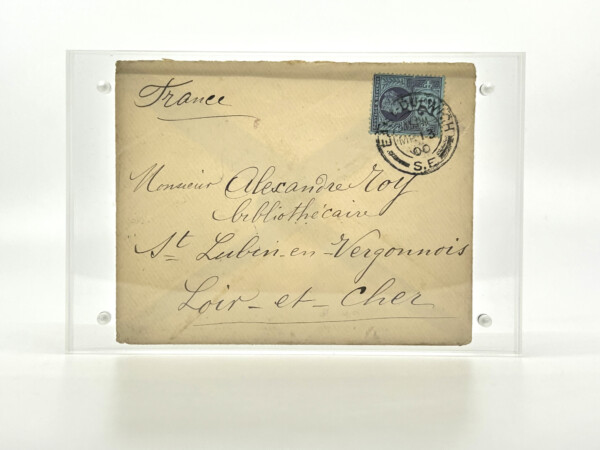 France
Monsieur Alexandre Roy
bibliothécaire
St Lubin-en-Vergonnois
Loir-et-Cher
00
S.E.